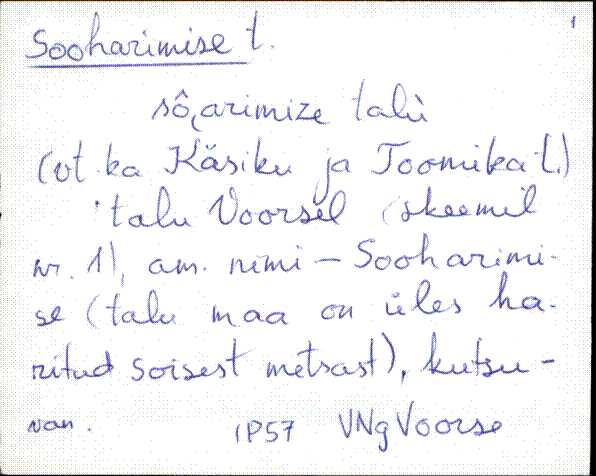 1
Sooharimise t.
sôarimize talù
(vt. ka Käsiku ja Toomika t.)
talu Voorsel (skeemil
nr. 1), am. nimi – Sooharimi-
se (talu maa on üles ha-
ritud soisest metsast), kutsu-
van. IP57 VNg Voorse